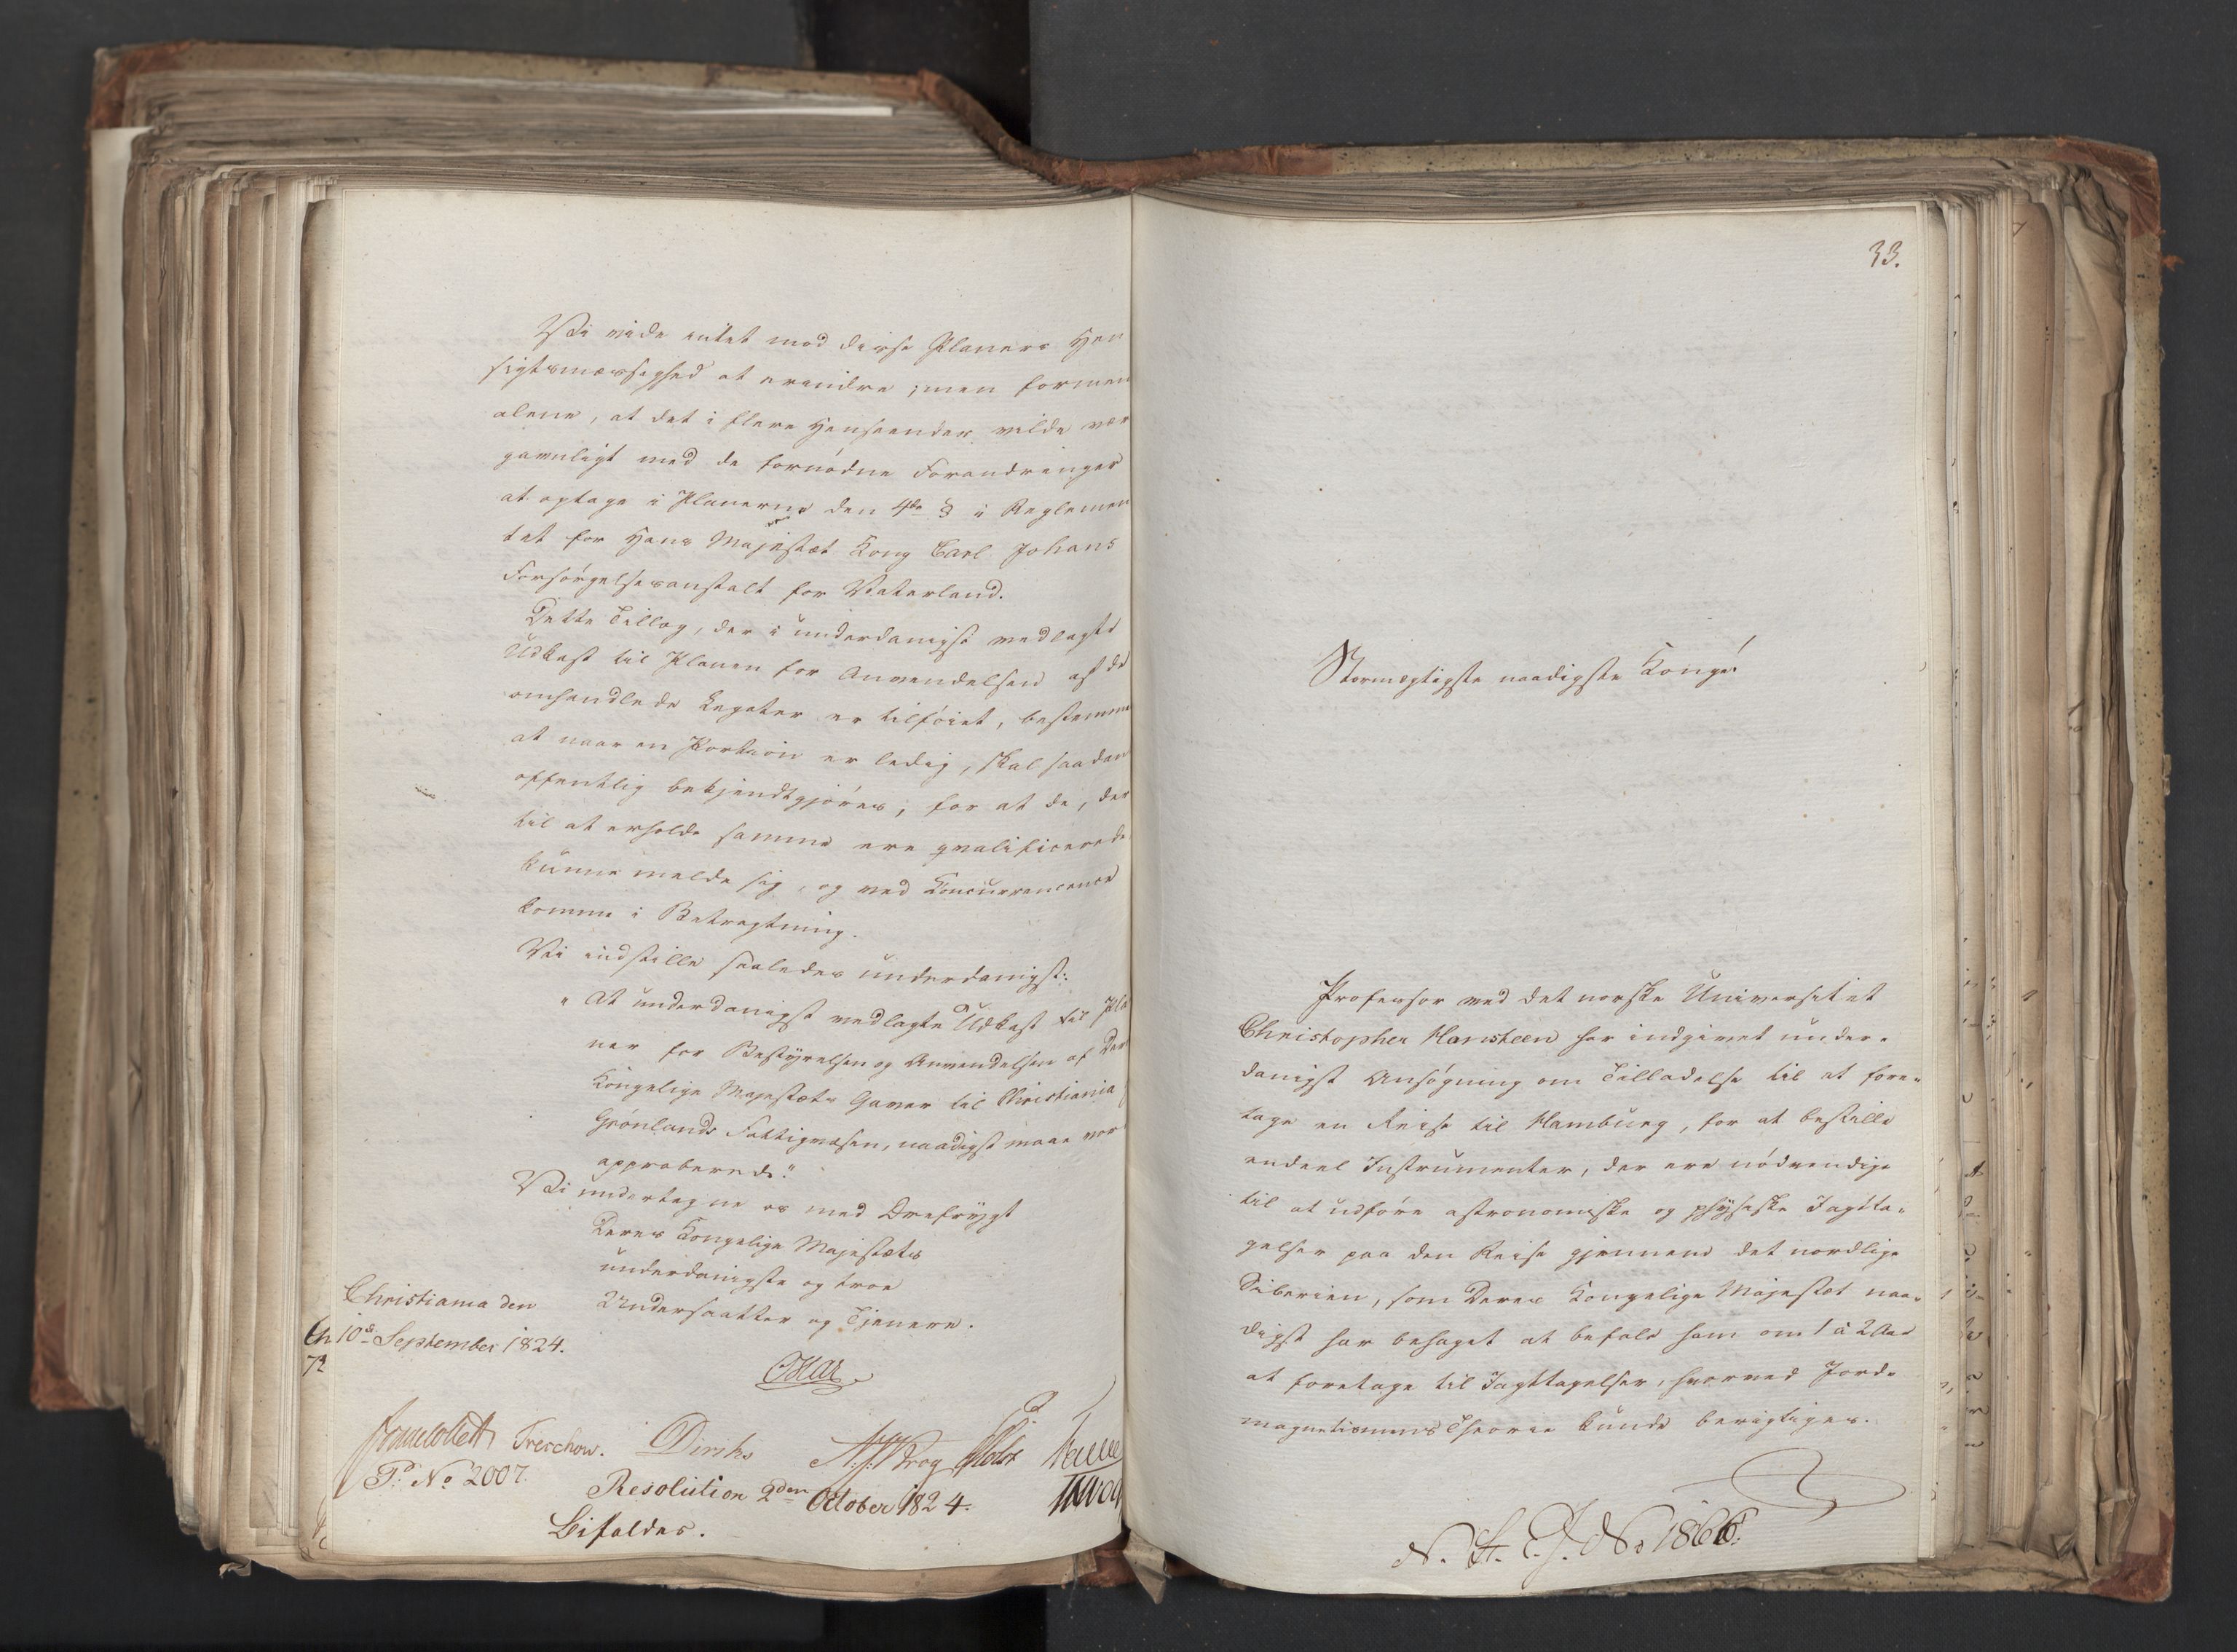 Vi vide intet mod disse Planers Hen
sigtsmæssighed at erindre; men formen
alene, at det i flere Henseender vilde vær
gavnligt med de fornødne Forandringer
at optage i Planerne den 4de § i Reglemen
tet for Hans Majestæt Kong Carl Johans
Forsørgelsesanstalt for Vaterland.
Dette Tillæg, der i underdanigst vedlagte
Udkast til Planen for Anvendelsen af de
omhandlede Legater er tilføiet, bestemme
at naar en Portion er ledig, skal saadan
offentlig bekjendtgjøres, for at de, der
til at erholde samme ere qvalificerede
kunne melde sig, og ved Concurrencence
komme i Betragtning.
Vi indstille saaledes underdanigst:
"At underdanigst vedlagte Udkast til Pla
ner for Bestyrelsen og Anvendelsen af Der
Kongelige Majestæts Gaver til Christiania
Grønlands Fattigvæsen, naadigst maae vor
approberede."
Vi undertegne os med Ærefrygt
Deres Kongelige Majestæts
underdanigste og troe
Undersaatter og Tjenere.
Christiania den
10de September 1824.
Oscar
Jonas Collett Treschow. Diriks Krog Holst
P: No 2007.
Resolution 2den October 1824.
Bifaldes.
33.
Stormægtigste naadigste Konge!
Professor ved det norske Universitet
Christopher Hansteen har indgivet under-
danigst Ansøgning om Tilladelse til at fore-
tage en Reise til Hamburg, for at bestille
endeel Instrumenter, der ere nødvendige
til at udføre astronomiske og physiske Iagtta-
gelser paa den Reise gjennem det nordlige
Siberien, som Deres Kongelige Majestæt naa-
digst har behaget at befale ham om 1 à 2 Aar
at foretage til Iagttagelser, hvorved Jord-
magnetismens Theorie kunde berigtiges.
N. St. S. J. No 1866.